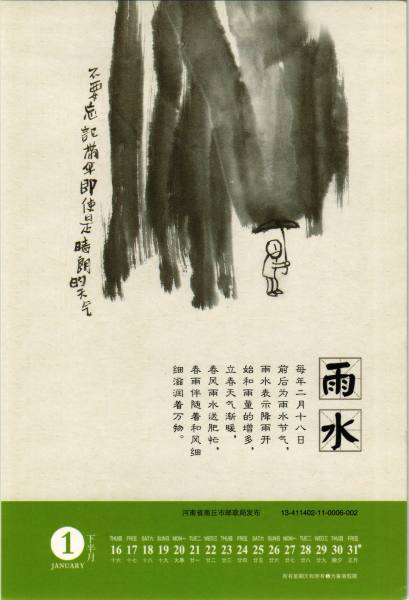 不要忘記帶伞即使是晴朗的天气
雨水
每年二月十八日
前后为雨水节气，
雨水表示降雨开
始和雨量的增多，
立春天气渐暖，
春风雨水送肥忙，
春雨伴随着和风细
细滋润着万物。
河南省商丘市邮政局发布 13-411402-11-0006-002
1 下半月
JANUARY
THU四 FRI五 SAT六 SUN日 MON一 TUE二 WED三 THU四 FRI五 SAT六 SUN日 MON一 TUE二 WED三 THU四 FRI五
16 17 18 19 20 21 22 23 24 25 26 27 28 29 30 31
十六 十七 十八 十九 大寒 廿一 廿二 廿三 廿四 廿五 廿六 廿七 廿八 廿九 除夕 正月